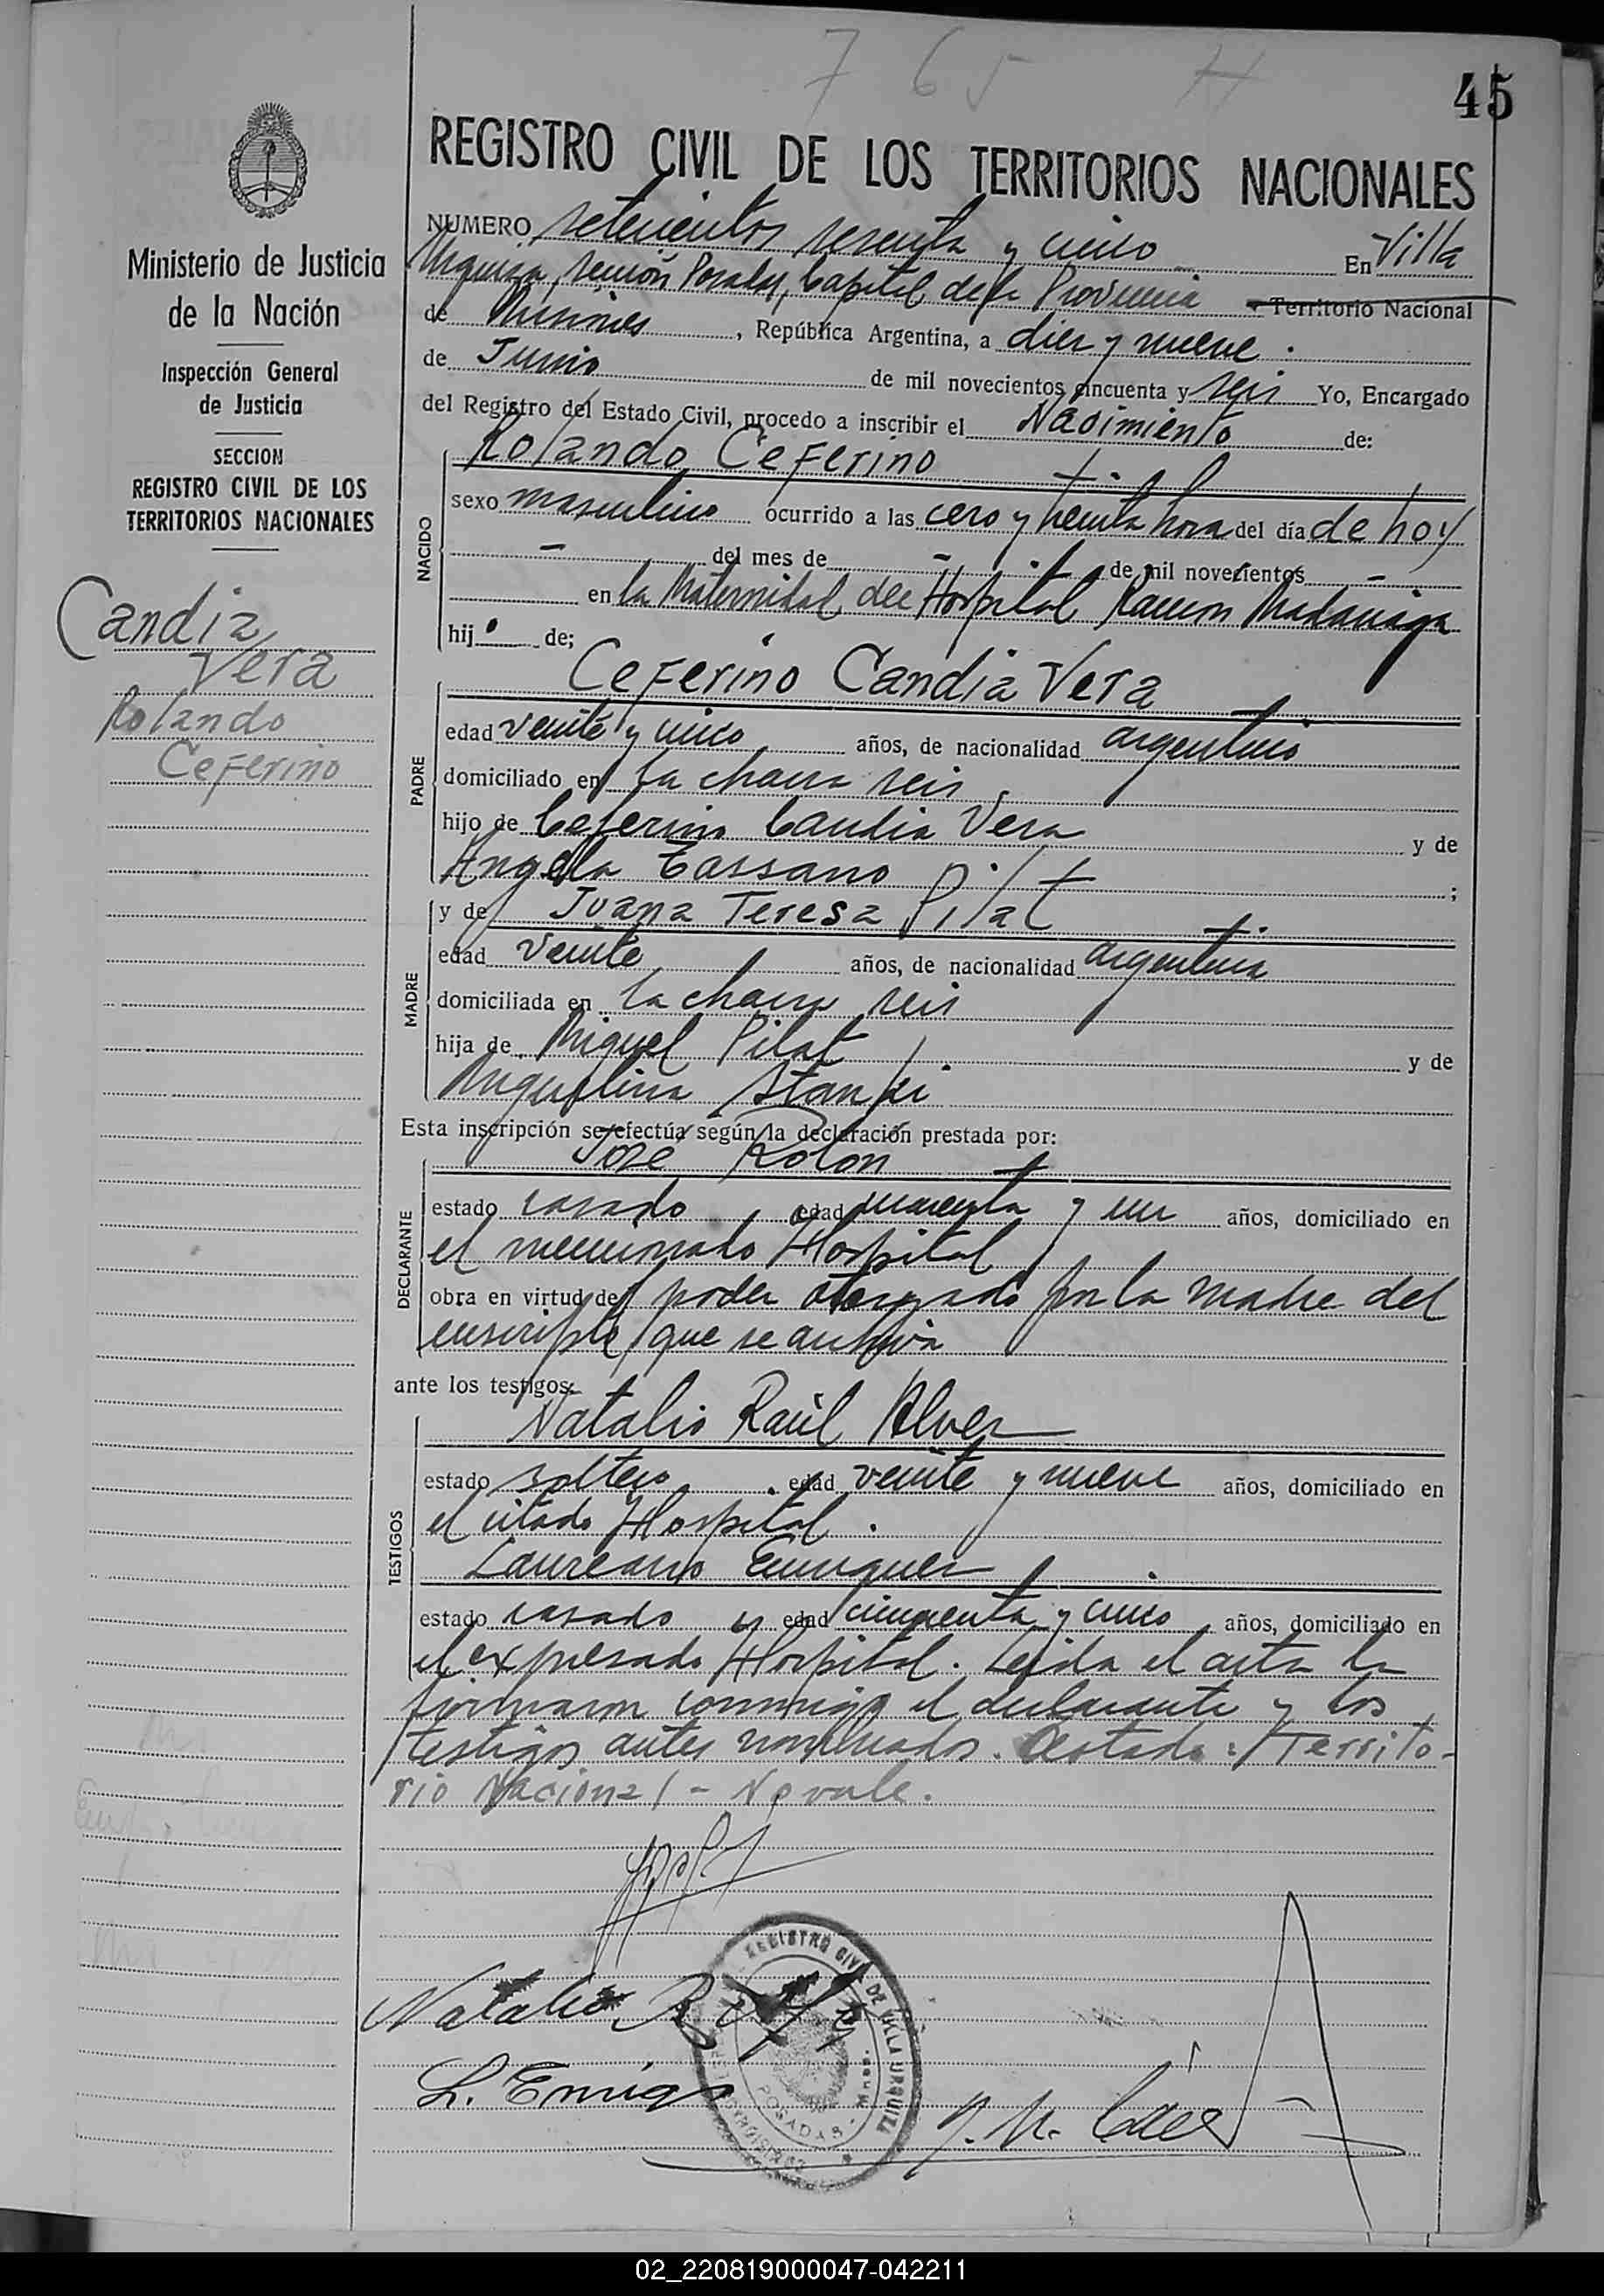 765
45
REGISTRO CIVIL DE LOS TERRITORIOS NACIONALES
Ministerio de Justicia
de la Nación
Inspección General
de Justicia
SECCION
REGISTRO CIVIL DE LOS
TERRITORIOS NACIONALES
Candia
Vera
Rolando
Ceferino
NUMERO setecientos sesenta y cinco En Villa
Urquiza, sección Posadas, Capital de la Provincia Territorio Nacional
de Misiones, República Argentina, a diez y nueve.
de Junio de mil novecientos cincuenta y seis Yo, Encargado
del Registro del Estado Civil, procedo a inscribir el Nacimiento de:
NACIDO
Rolando Ceferino
sexo masculino ocurrido a las cero y treinta hora del día de hoy
- del mes de - de mil novecientos -
en la Maternidad del Hospital Ramon Madariaga
hijo de;
PADRE
Ceferino Candia Vera
edad veinte y cinco años, de nacionalidad argentino
domiciliado en la chacra seis
hijo de Ceferino Candia Vera y de
Angela Tassano ;
MADRE
y de Juana Teresa Pilat
edad veinte años, de nacionalidad argentina
domiciliada en la chacra seis
hija de Miguel Pilat y de
Miguelina
Esta inscripción se efectúa según la declaración prestada por:
DECLARANTE
José Rolon
estado casado edad cuarenta y un años, domiciliado en
el mencionado Hospital
obra en virtud del poder otorgado por la madre del
inscripto que se archiva
ante los testigos:
TESTIGOS
Natalio Raúl Alvez
estado soltero edad veinte y nueve años, domiciliado en
el citado Hospital.
Laureano Enriquez
estado casado y edad cincuenta y cinco años, domiciliado en
el expresado Hospital. Leida el acta la
firmaron conmigo el declarante y los
testigos antes nombrados. Testado: Territo-
rio Nacional - No vale.
Natalio R
REGISTRO CIVIL DE VILLA URQUIZA
POSADAS - Mnes.
L. Enriq
02_220819000047-042211